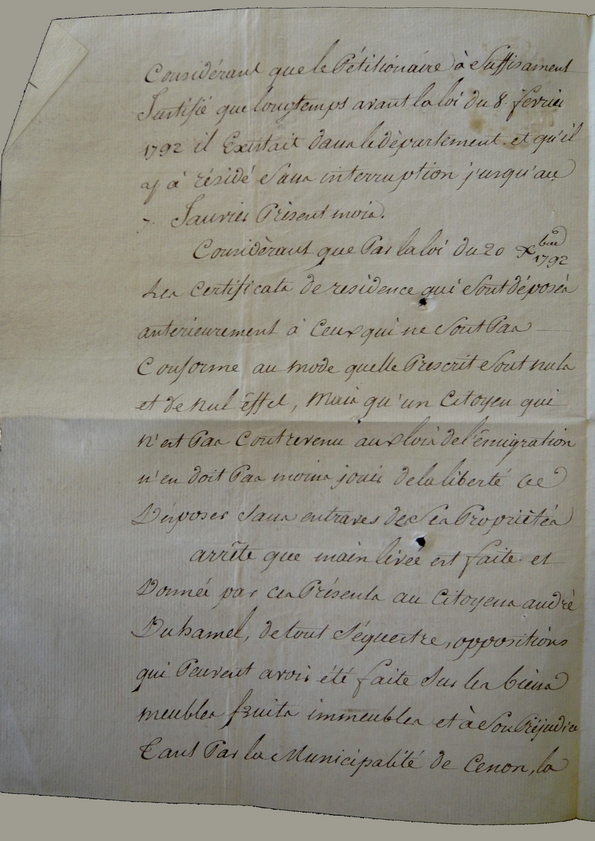 Considérant que le Pétitionaire à Suffisament
Justifié que longtemps avant la loi du 8. fevrier
1792 il Existait dans le département. et qu'il
y à résidé Sans interruption jusqu'au
Janvier Présent mois.
Considèrant que Par la loi du 20 Xbre 1792
Les certificats de residence qui Sont déposés
antérieurement à Ceux qui ne Sont Pas
Conforme au mode quelle Prescrit Sont nuls
et de nul éffet, Mais qu'un Citoyen qui
n'est Pas Contrevenu aux loix de l'émigration
n'en doit Pas moins jouir de la liberté de
Disposer Sans entraves de Ses Propriétés
arrête que main livée est faite et
Donnée par ces Présents au Citoyens andré
Duhamel, de tout Séquestre, oppositions
qui Peuvent avoir été faite Sur les biens
meubles fruits immeubles et à Son Préjudice
Tant Par la Municipalité de Cenon, la